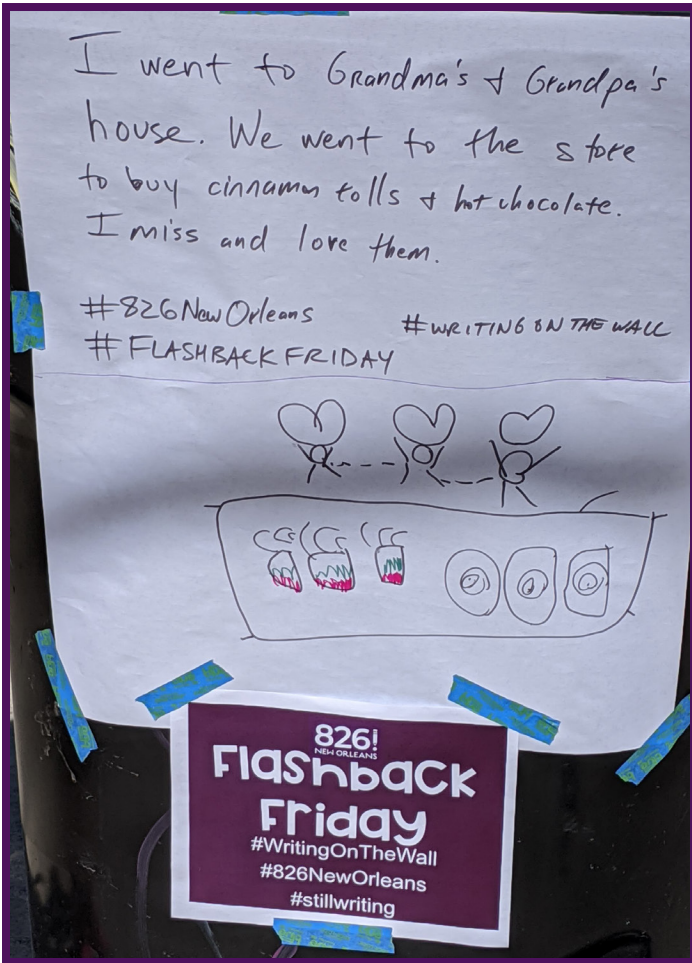 I went to Grandma's & Grandpa's
house. We went to the store
to buy cinnamon rolls & hot chocolate.
I miss and love them.
#826NewOrleans
#WRITING ON THE WALL
#FLASHBACKFRIDAY
826!
NEW ORLEANS
Flashback
Friday
#WritingOnTheWall
#826NewOrleans
#stillwriting